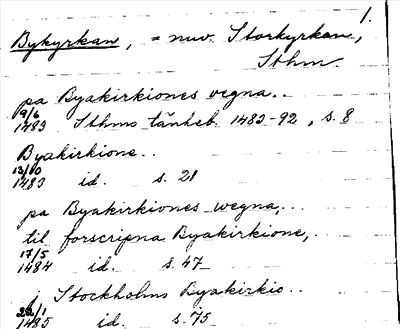 1.
Bykyrkan, = nuv. Storkyrkan,
Sthm.
pa Byakirkiones vegna..
9/6
1483 Sthms tänkeb. 1483-92, s. 8
Byakirkione..
13/10
1483 id. s. 21
pa Byakirkiones wegna,..
til forscripna Byakirkione,..
17/5
1484 id. s. 47
j Stockholms Byakirkio..
22/1
1485 id. s. 75